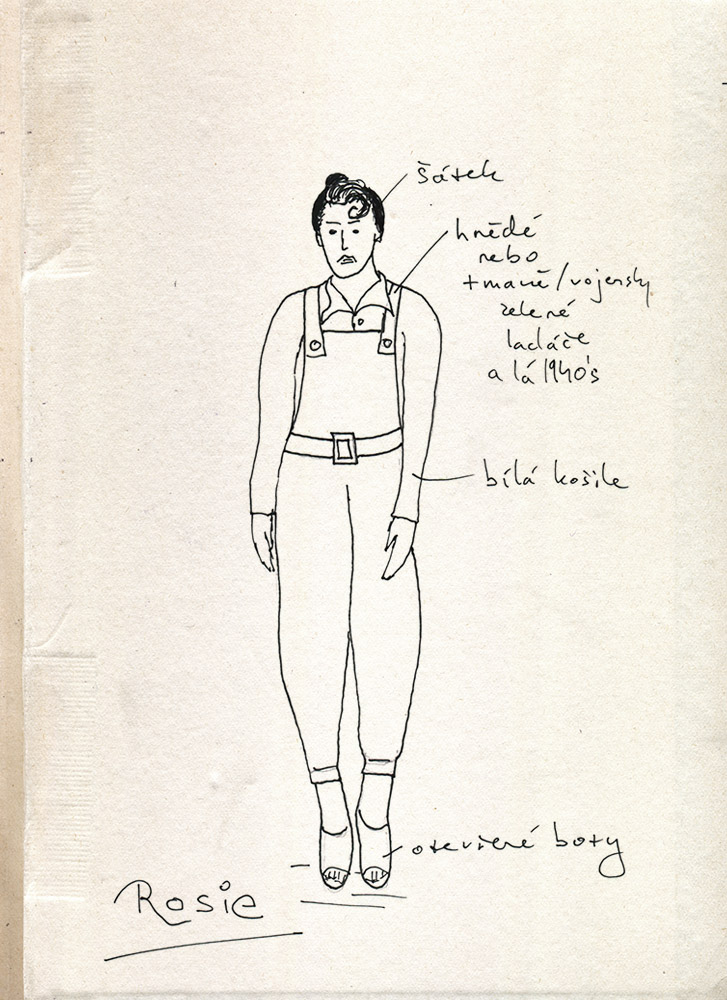 šátek
hnědé
nebo
tmavě/vojensky
zelené
lacláče
a lá 1940's
bílá košile
otevřené boty
Rosie